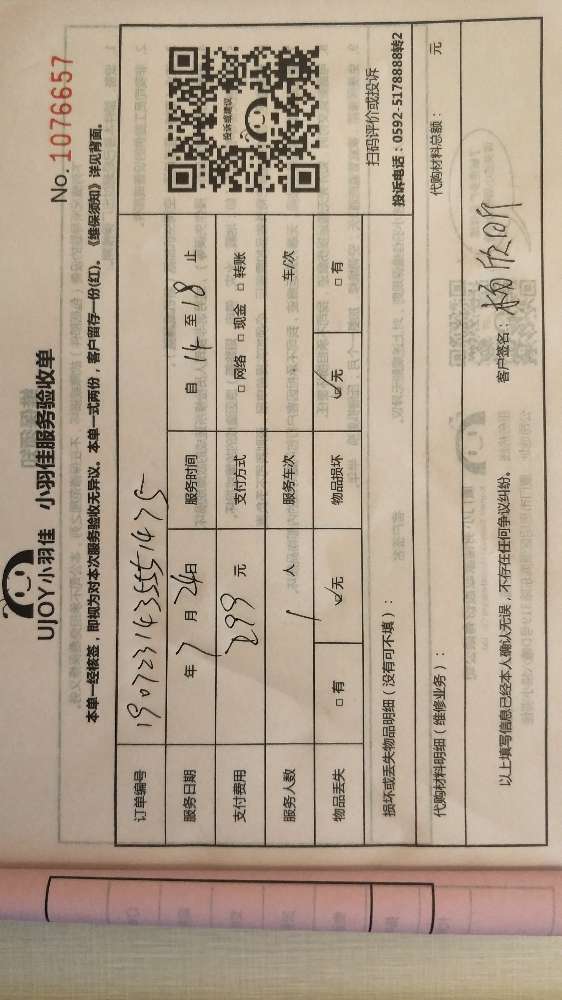 UJOY小羽佳 小羽佳服务验收单
No. 1076657
本单一经核签，即视为对本次服务验收无异议。本单一式两份，客户留存一份(红)。《维保须知》详见背面。
订单编号 1907231435551475
服务日期 年 7 月 24 日 服务时间 自 14 至 18 止
支付费用 299 元 支付方式 □ 网络 □ 现金 □ 转账
服务人数 1 人 服务车次 车/次
物品丢失 □ 有 ☑ 无 物品损坏 ☑ 无 □ 有
投诉或建议
扫码评价或投诉
投诉电话：0592-5178888转2
损坏或丢失物品明细（没有可不填）：
代购材料明细（维修业务）： 代购材料总额： 元
以上填写信息已经本人确认无误，不存在任何争议纠纷。 客户签名： 杨欣昕